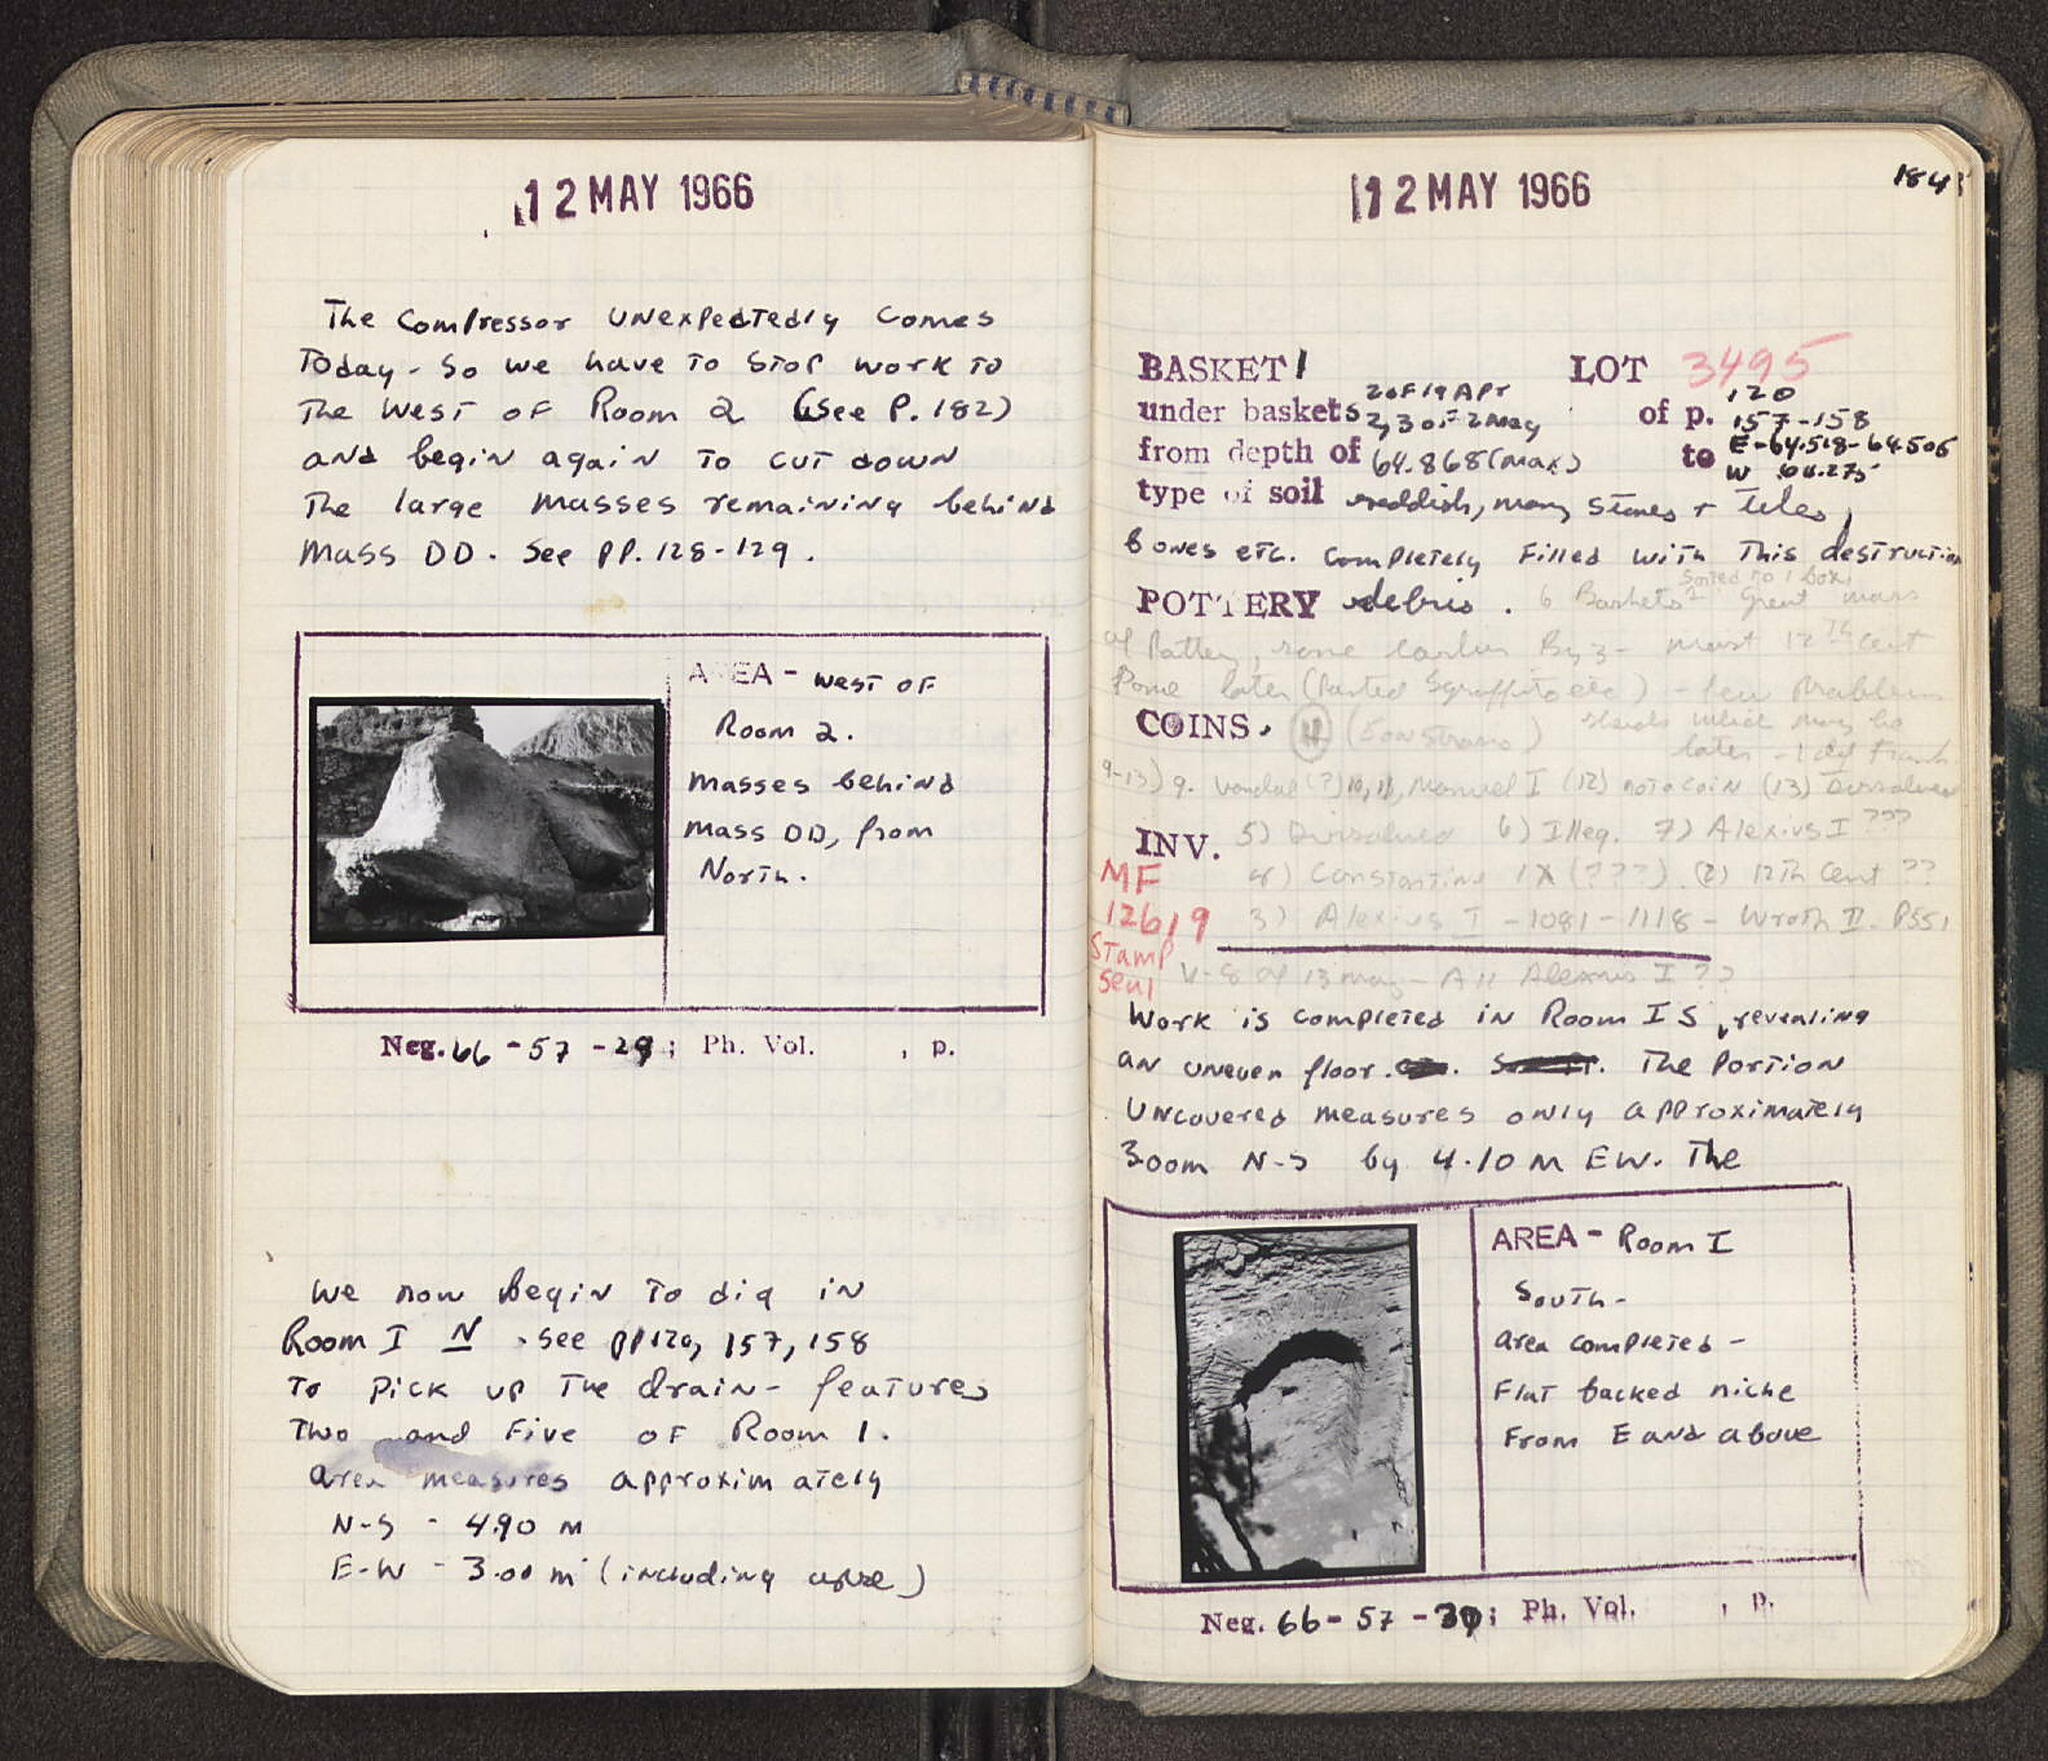 12 MAY 1966
The Compressor unexpectedly comes
Today - So we have to stop work to
The West of Room 2 (See P. 182)
and begin again to cut down
The large masses remaining behind
Mass DD. See pp. 128-129.
AREA - West of
Room 2.
Masses behind
Mass DD, from
North.
Neg. 66-57-29; Ph. Vol. , p.
We now begin to dig in
Room I N. See pp 120, 157, 158
To pick up the drain - features
Two and Five of Room 1.
Area measures approximately
N-S - 4.90 m
E-W - 3.00 m (including apse)
12 MAY 1966
184
BASKET 1 LOT 3495
under baskets 2 of 19 Apr 2,3 of 2 May of p. 120 157-158
from depth of 64.868 (max) to E-64.518-64.505 W 64.275
type of soil reddish, many stones + tiles,
bones etc. Completely filled with this destruction
POTTERY debris. 6 Baskets sorted to 1 box. Great mass
of Pottery, some earlier Byz - most 12th cent
Some later (Painted Sgraffito etc) - few problem
COINS. (5 on strano) sherds which may be
later - 1 of Frank
9-13) 9. Vandal (?) 10, 11, Manuel I (12) not a coin (13) Dissolved
INV. 5) Dissolved 6) Illeg. 7) Alexius I ???
4) Constantine IX (???) (2) 12th Cent ??
3) Alexius I - 1081-1118 - Wroth II. P551
MF
12619
Stamp
Seal
V-8 of 13 may - All Alexius I ??
Work is completed in Room I S, revealing
an uneven floor. The portion
Uncovered measures only approximately
3.00m N-S by 4.10 m EW. The
AREA - Room I
South -
area completed -
Flat backed niche
From E and above
Neg. 66-57-30; Ph. Vol. , p.